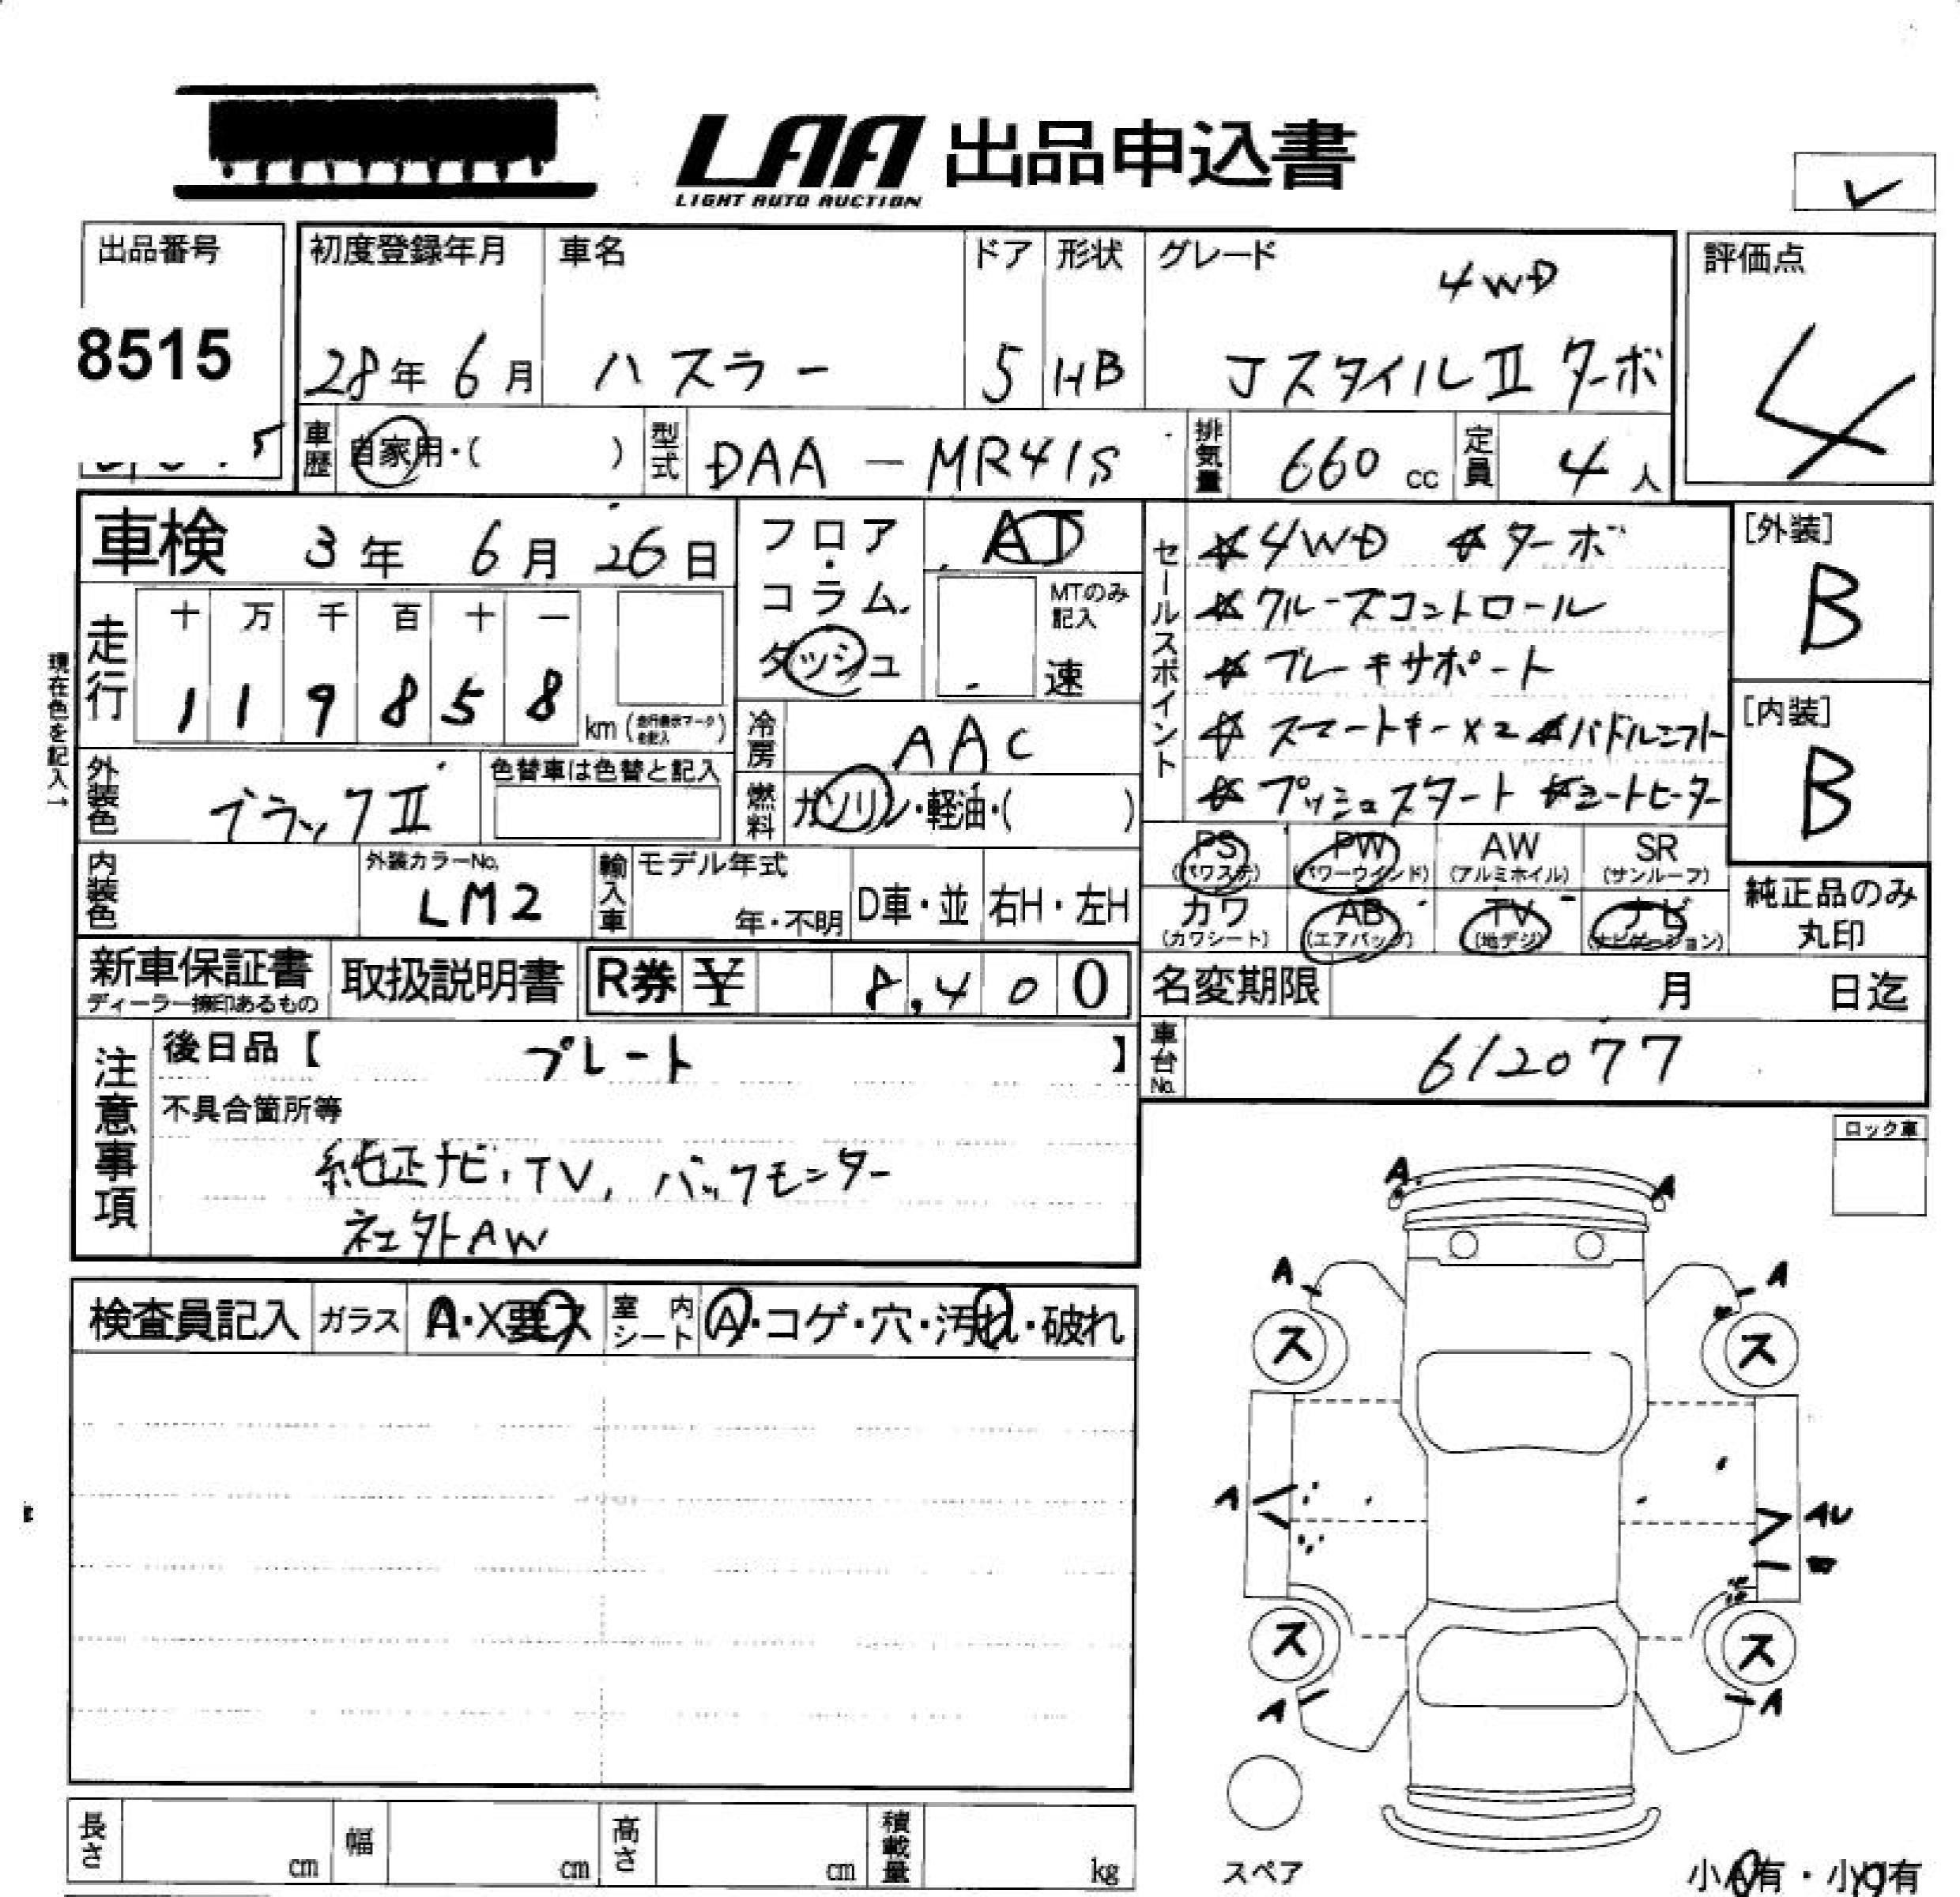 LAA 出品申込書
LIGHT AUTO AUCTION
出品番号
8515
初度登録年月
28年 6月
車名
ハスラー
ドア
5
形状
HB
グレード
4WD
JスタイルⅡ ターボ
評価点
4
車歴
自家用・( )
型式
DAA-MR41S
排気量
660 cc
定員
4 人
車検 3年 6月 26日
走行
十 万 千 百 十 一
1 1 9 8 5 8 km
現在色を記入→
フロア・コラム・
ダッシュ
AT
MTのみ
記入
速
冷房
AAC
燃料
ガソリン・軽油・( )
セールスポイント
☆4WD ☆ターボ
☆クルーズコントロール
☆ブレーキサポート
☆スマートキー×2 ☆パドルシフト
☆プッシュスタート ☆シートヒーター
[外装]
B
[内装]
B
外装色
ブラックⅡ
色替車は色替と記入
内装色
外装カラーNo.
LM2
輸入車
モデル年式
年・不明
D車・並
右H・左H
PS
(パワステ)
PW
(パワーウインド)
AW
(アルミホイル)
SR
(サンルーフ)
カワ
(カワシート)
AB
(エアバッグ)
TV
(地デジ)
ナビ
(ナビゲーション)
純正品のみ
丸印
新車保証書
ディーラー捺印あるもの
取扱説明書
R券 ¥ 8,400
名変期限 月 日迄
車台No.
612077
注意事項
後日品【 プレート 】
不具合箇所等
純正ナビ,TV,バックモニター
社外AW
ロック車
検査員記入
ガラス
A・X要ス
室内シート
A・コゲ・穴・汚れ・破れ
A A
A A
ス ス
A AU
ス ス
A A
スペア
長さ cm
幅 cm
高さ cm
積載量 kg
小A有・小U有